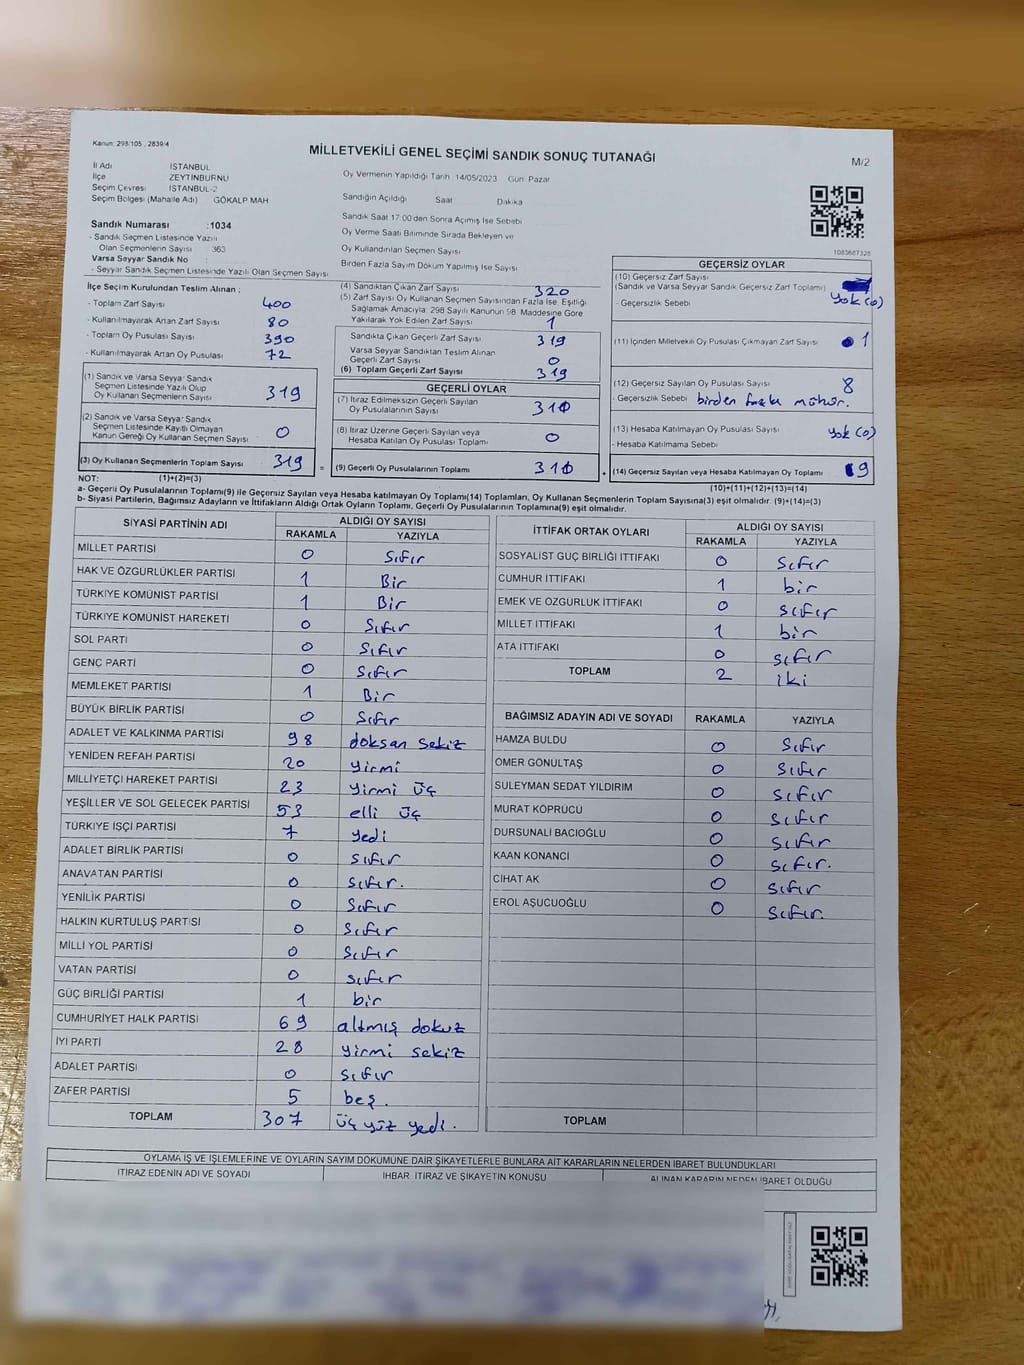 Kanun: 298/105 , 2839/4
MİLLETVEKİLİ GENEL SEÇİMİ SANDIK SONUÇ TUTANAĞI
M/2
İl Adı İSTANBUL
İlçe ZEYTİNBURNU
Seçim Çevresi İSTANBUL-2
Seçim Bölgesi (Mahalle Adı) GÖKALP MAH
Sandık Numarası :1034
- Sandık Seçmen Listesinde Yazılı
Olan Seçmenlerin Sayısı 363
Varsa Seyyar Sandık No :
- Seyyar Sandık Seçmen Listesinde Yazılı Olan Seçmen Sayısı
Oy Vermenin Yapıldığı Tarih :14/05/2023 Gün :Pazar
Sandığın Açıldığı Saat Dakika
Sandık Saat 17:00'den Sonra Açılmış İse Sebebi
Oy Verme Saati Bitiminde Sırada Bekleyen ve
Oy Kullandırılan Seçmen Sayısı
Birden Fazla Sayım Döküm Yapılmış İse Sayısı
1083687328
İlçe Seçim Kurulundan Teslim Alınan ;
- Toplam Zarf Sayısı 400
- Kullanılmayarak Artan Zarf Sayısı 80
- Toplam Oy Pusulası Sayısı 390
- Kullanılmayarak Artan Oy Pusulası 72
(1) Sandık ve Varsa Seyyar Sandık
Seçmen Listesinde Yazılı Olup
Oy Kullanan Seçmenlerin Sayısı 319
(2) Sandık ve Varsa Seyyar Sandık
Seçmen Listesinde Kayıtlı Olmayan
Kanun Gereği Oy Kullanan Seçmen Sayısı 0
(3) Oy Kullanan Seçmenlerin Toplam Sayısı 319
(1)+(2)=(3)
(4) Sandıktan Çıkan Zarf Sayısı 320
(5) Zarf Sayısı Oy Kullanan Seçmen Sayısından Fazla İse, Eşitliği
Sağlamak Amacıyla; 298 Sayılı Kanunun 98. Maddesine Göre
Yakılarak Yok Edilen Zarf Sayısı 1
Sandıkta Çıkan Geçerli Zarf Sayısı 319
Varsa Seyyar Sandıktan Teslim Alınan
Geçerli Zarf Sayısı 0
(6) Toplam Geçerli Zarf Sayısı 319
GEÇERLİ OYLAR
(7) İtiraz Edilmeksizin Geçerli Sayılan
Oy Pusulalarının Sayısı 310
(8) İtiraz Üzerine Geçerli Sayılan veya
Hesaba Katılan Oy Pusulası Toplamı 0
= (9) Geçerli Oy Pusulalarının Toplamı 310
GEÇERSİZ OYLAR
(10) Geçersiz Zarf Sayısı
(Sandık ve Varsa Seyyar Sandık Geçersiz Zarf Toplamı)
yok (0)
- Geçersizlik Sebebi
(11) İçinden Milletvekili Oy Pusulası Çıkmayan Zarf Sayısı 1
(12) Geçersiz Sayılan Oy Pusulası Sayısı 8
- Geçersizlik Sebebi birden fazla mühür.
(13) Hesaba Katılmayan Oy Pusulası Sayısı yok (0)
- Hesaba Katılmama Sebebi
+ (14) Geçersiz Sayılan veya Hesaba Katılmayan Oy Toplamı 9
(10)+(11)+(12)+(13)=(14)
NOT:
a- Geçerli Oy Pusulalarının Toplamı(9) ile Geçersiz Sayılan veya Hesaba katılmayan Oy Toplamı(14) Toplamları, Oy Kullanan Seçmenlerin Toplam Sayısına(3) eşit olmalıdır. (9)+(14)=(3)
b- Siyasi Partilerin, Bağımsız Adayların ve İttifakların Aldığı Ortak Oyların Toplamı, Geçerli Oy Pusulalarının Toplamına(9) eşit olmalıdır.
SİYASİ PARTİNİN ADI ALDIĞI OY SAYISI
RAKAMLA YAZIYLA
MİLLET PARTİSİ 0 Sıfır
HAK VE ÖZGÜRLÜKLER PARTİSİ 1 Bir
TÜRKİYE KOMÜNİST PARTİSİ 1 Bir
TÜRKİYE KOMÜNİST HAREKETİ 0 Sıfır
SOL PARTİ 0 Sıfır
GENÇ PARTİ 0 Sıfır
MEMLEKET PARTİSİ 1 Bir
BÜYÜK BİRLİK PARTİSİ 0 Sıfır
ADALET VE KALKINMA PARTİSİ 98 doksan sekiz
YENİDEN REFAH PARTİSİ 20 yirmi
MİLLİYETÇİ HAREKET PARTİSİ 23 yirmi üç
YEŞİLLER VE SOL GELECEK PARTİSİ 53 elli üç
TÜRKİYE İŞÇİ PARTİSİ 7 yedi
ADALET BİRLİK PARTİSİ 0 sıfır
ANAVATAN PARTİSİ 0 Sıfır.
YENİLİK PARTİSİ 0 Sıfır
HALKIN KURTULUŞ PARTİSİ 0 Sıfır
MİLLİ YOL PARTİSİ 0 Sıfır
VATAN PARTİSİ 0 sıfır
GÜÇ BİRLİĞİ PARTİSİ 1 bir
CUMHURİYET HALK PARTİSİ 69 altmış dokuz
İYİ PARTİ 28 yirmi sekiz
ADALET PARTİSİ 0 sıfır
ZAFER PARTİSİ 5 beş.
TOPLAM 307 üç yüz yedi.
İTTİFAK ORTAK OYLARI ALDIĞI OY SAYISI
RAKAMLA YAZIYLA
SOSYALİST GÜÇ BİRLİĞİ İTTİFAKI 0 Sıfır
CUMHUR İTTİFAKI 1 bir
EMEK VE ÖZGÜRLÜK İTTİFAKI 0 sıfır
MİLLET İTTİFAKI 1 bir
ATA İTTİFAKI 0 sıfır
TOPLAM 2 iki
BAĞIMSIZ ADAYIN ADI VE SOYADI RAKAMLA YAZIYLA
HAMZA BULDU 0 Sıfır
ÖMER GÖNÜLTAŞ 0 Sıfır
SÜLEYMAN SEDAT YILDIRIM 0 sıfır
MURAT KÖPRÜCÜ 0 sıfır
DURSUNALİ BACIOĞLU 0 sıfır
KAAN KONANCİ 0 sıfır.
CİHAT AK 0 sıfır
EROL AŞUCUOĞLU 0 sıfır.
TOPLAM
OYLAMA İŞ VE İŞLEMLERİNE VE OYLARIN SAYIM DÖKÜMÜNE DAİR ŞİKAYETLERLE BUNLARA AİT KARARLARIN NELERDEN İBARET BULUNDUKLARI
İTİRAZ EDENİN ADI VE SOYADI İHBAR, İTİRAZ VE ŞİKAYETİN KONUSU ALINAN KARARIN NEDEN İBARET OLDUĞU